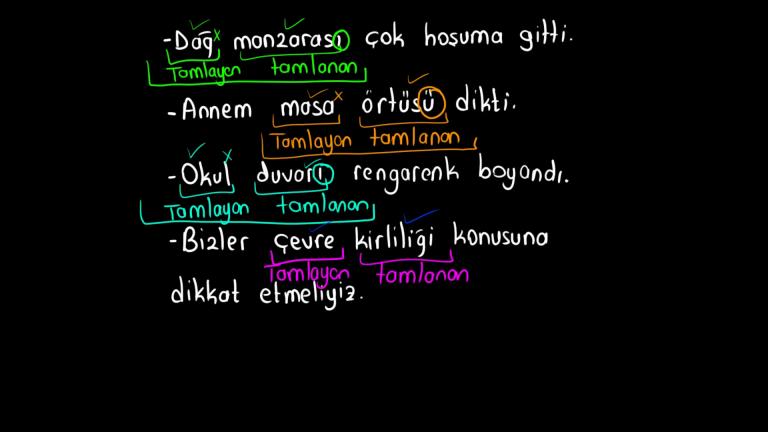 -Dağ manzarası çok hoşuma gitti.
Tamlayan tamlanan
-Annem masa örtüsü dikti.
Tamlayan tamlanan
-Okul duvarı rengarenk boyandı.
Tamlayan tamlanan
-Bizler çevre kirliliği konusuna
Tamlayan tamlanan
dikkat etmeliyiz.